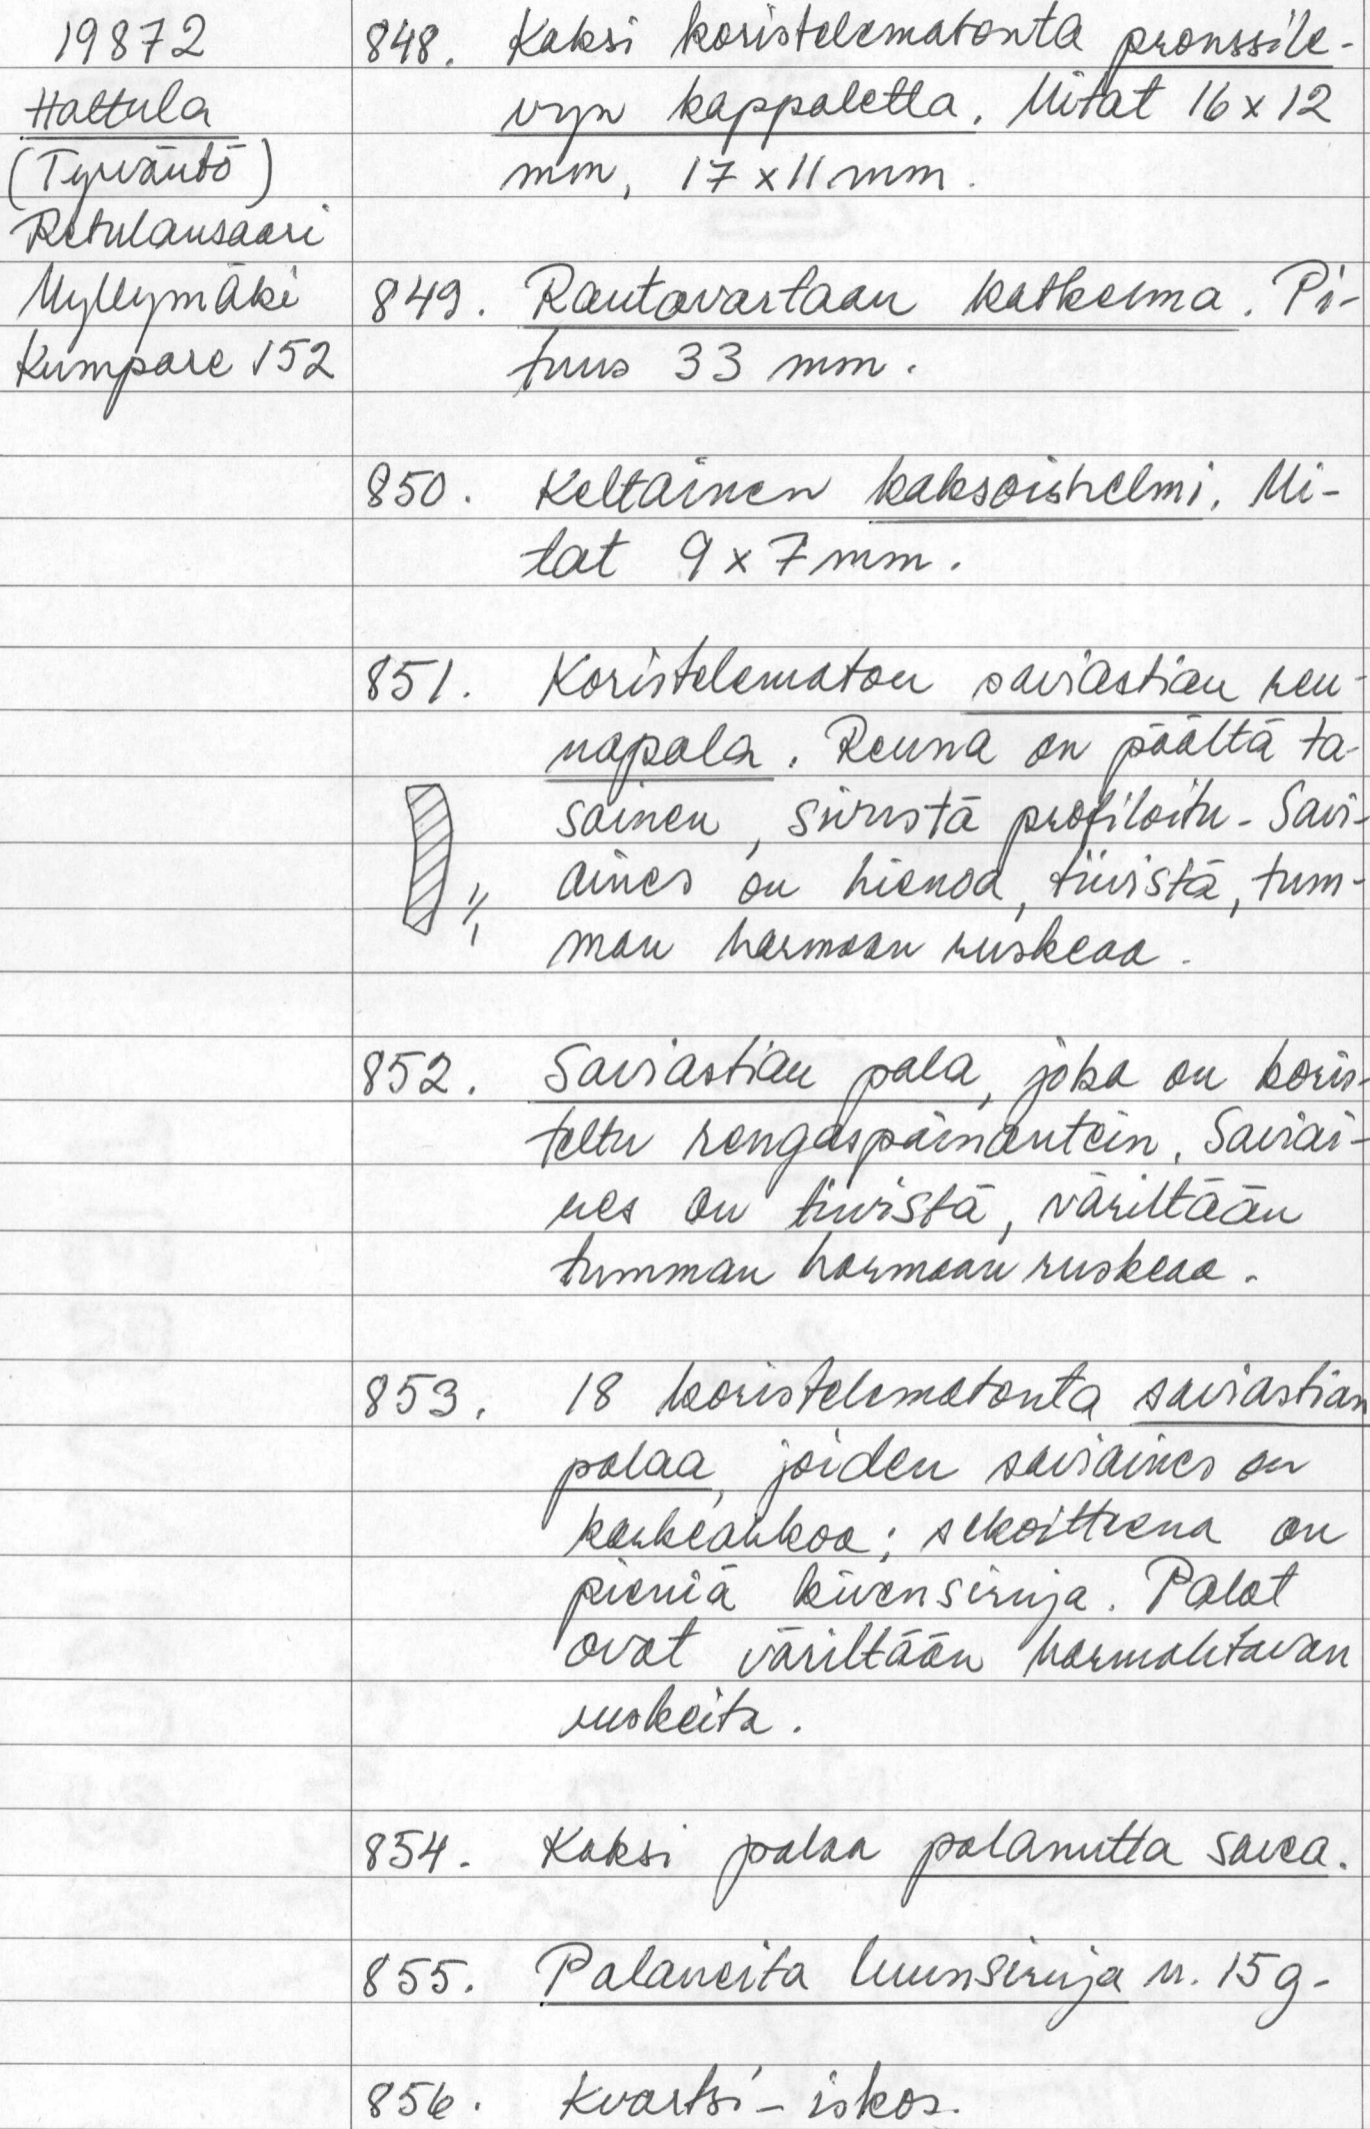 19872
Hattula
(Tyrväntö)
Retulansaari
Myllymäki
Kumpare 152
848. Kaksi koristelematonta pronssile-
vyn kappaletta. Mitat 16 x 12
mm, 17 x 11 mm.
849. Rautavartaan katkelma. Pi-
tuus 33 mm.
850. Keltainen kaksoishelmi. Mi-
tat 9 x 7 mm.
851. Koristelematon saviastian reu-
napala. Reuna on päältä ta-
sainen, sivusta profiloitu. Savi-
aines on hienoa, tiivistä, tum-
man harmaan ruskeaa.
1/1
852. Saviastian pala, joka on koris-
teltu rengaspainantein. Saviai-
nes on tiivistä, väriltään
tumman harmaan ruskeaa.
853. 18 koristelematonta saviastian
palaa, joiden saviaines on
karkeahkoa; sekoitteena on
pieniä kivensiruja. Palat
ovat väriltään harmahtavan
ruskeita.
854. Kaksi palaa palanutta savea.
855. Palaneita luunsiruja n. 15 g.
856. Kvartsi-iskos.